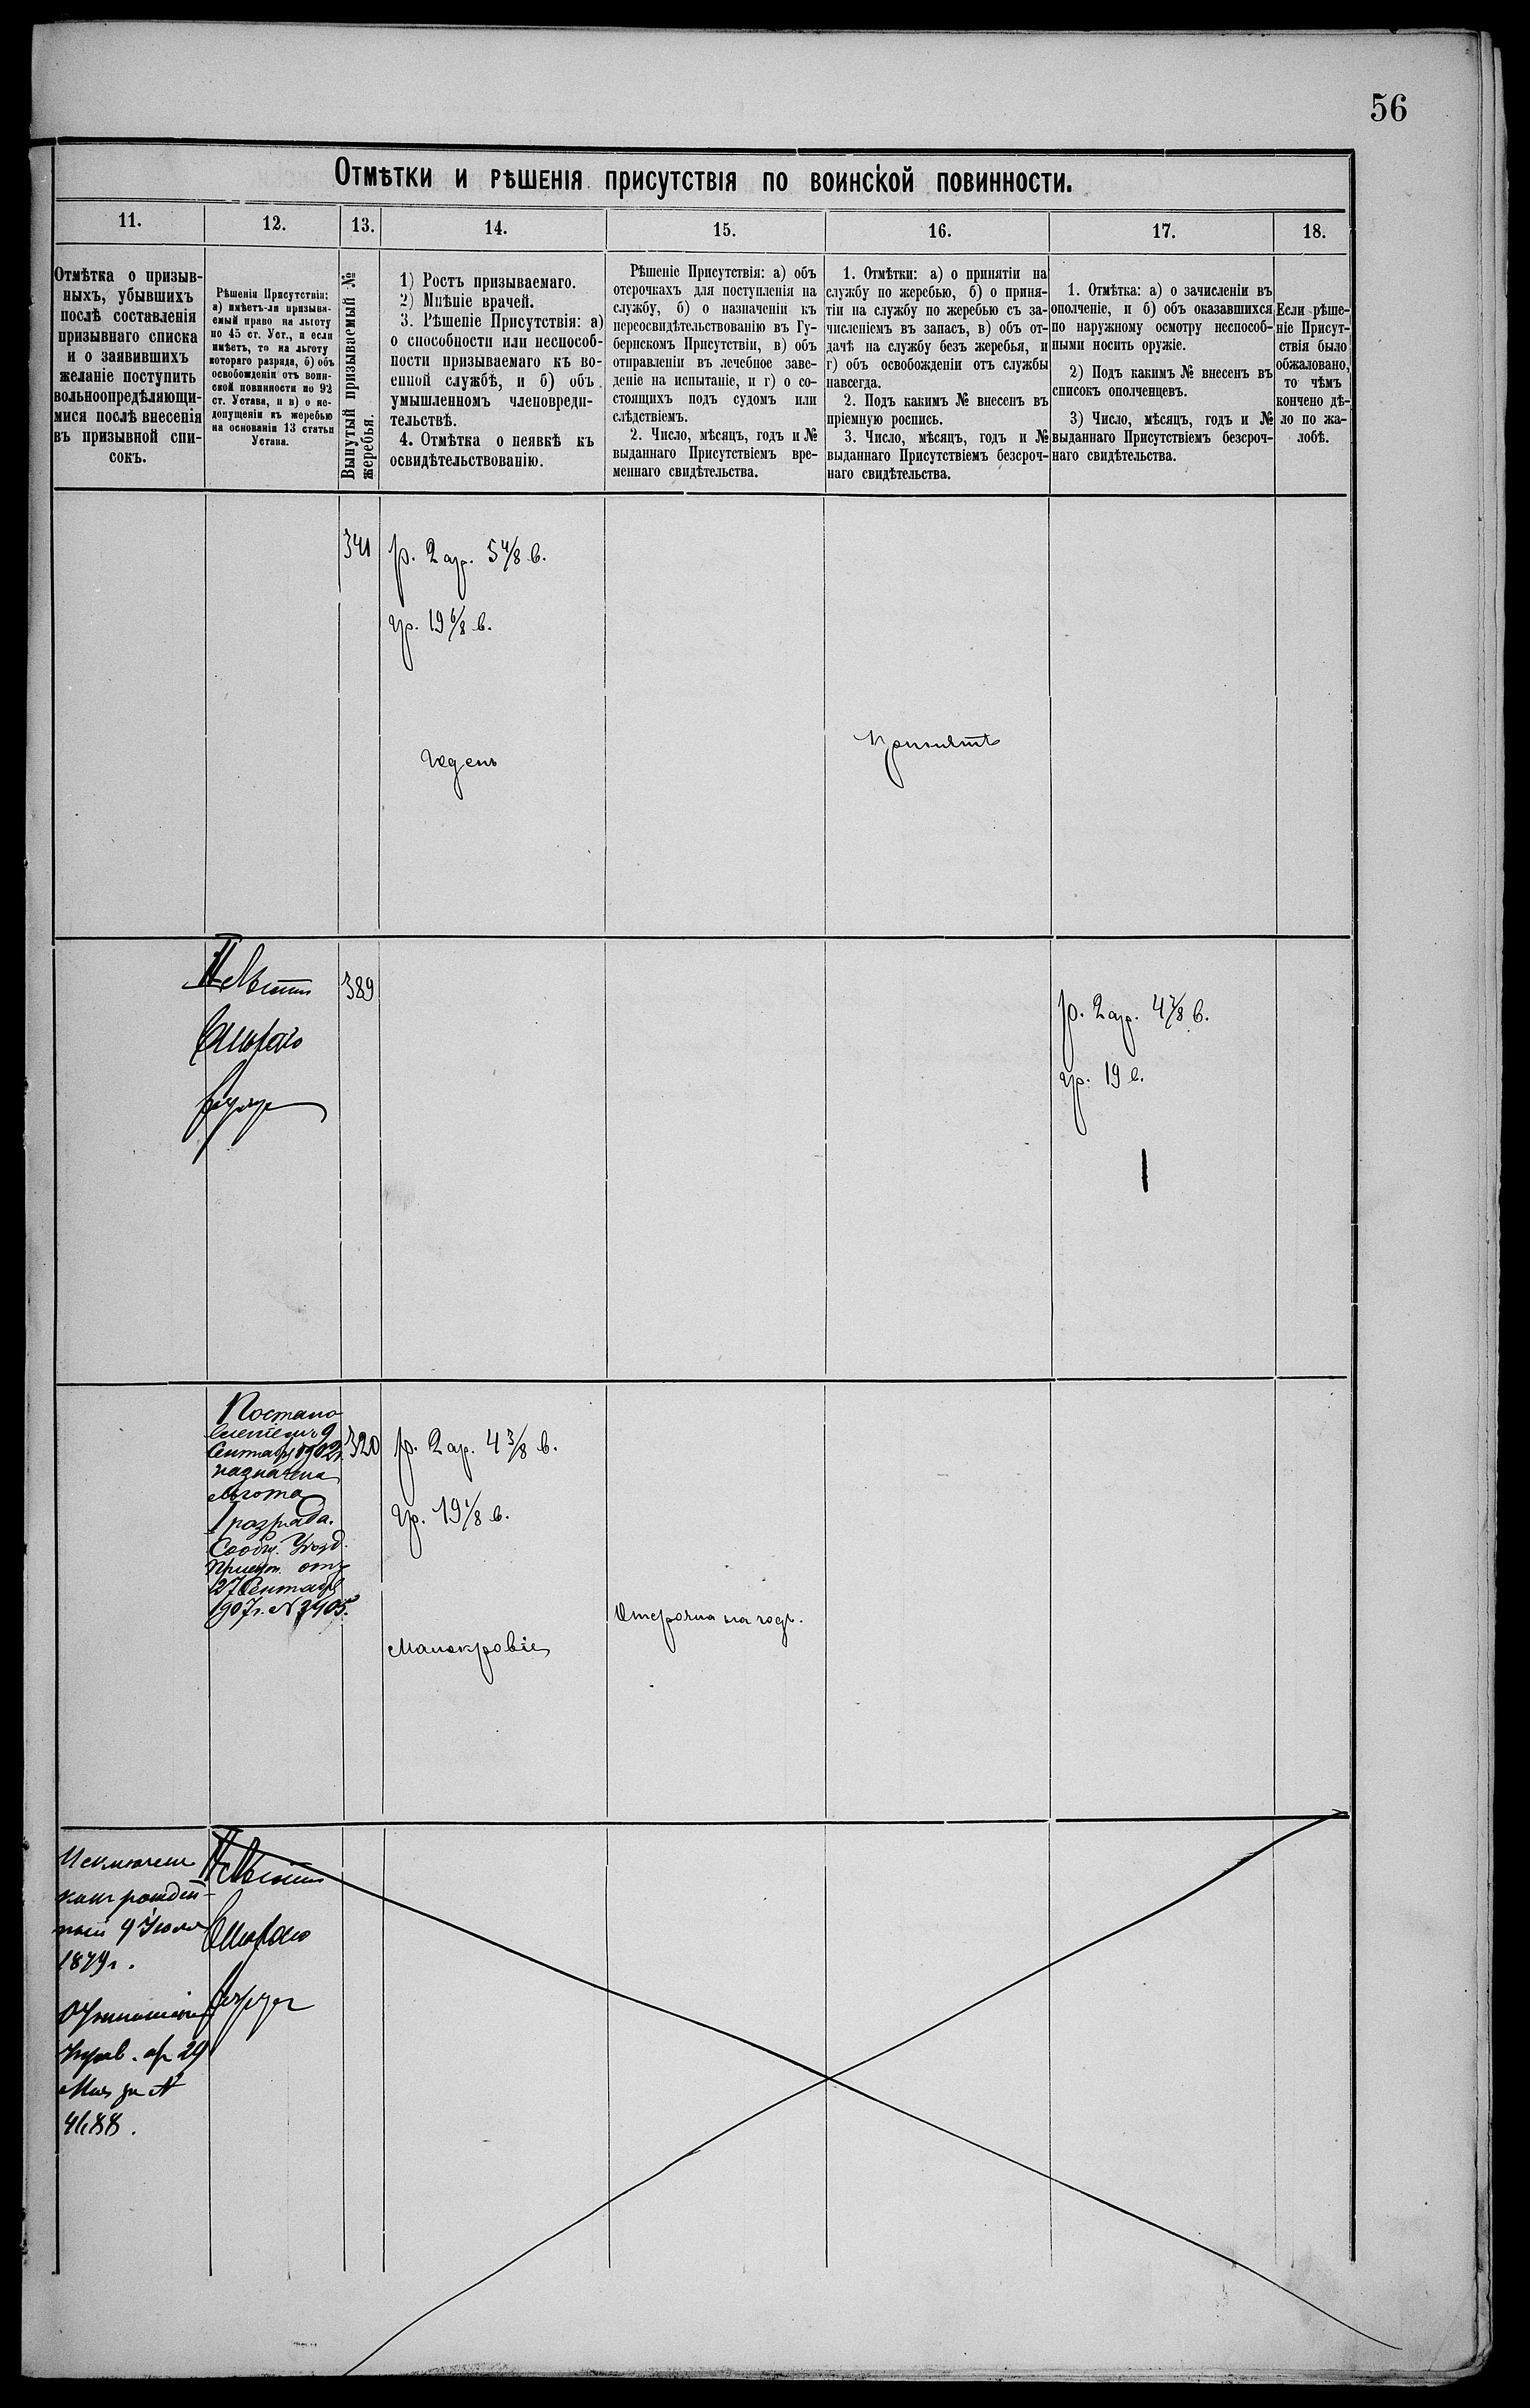 56
Отмѣтки и рѣшенія присутствія по воинской повинности.
11.
12.
13.
14.
15.
16.
17.
18.
Отмѣтка о призыв-
ныхъ, убывшихъ
послѣ составленія
призывнаго списка
и о заявившихъ
желаніе поступить
вольноопредѣляющи-
мися послѣ внесенія
въ призывной спи-
сокъ.
Рѣшенія Присутствія:
а) имѣетъ-ли призыва-
емый право на льготу
по 45 ст. Уст., и если
имѣетъ, то на льготу
котораго разряда, б) объ
освобожденіи отъ воин-
ской повинности по 92
ст. Устава, и в) о не-
допущеніи къ жеребью
на основаніи 13 статьи
Устава.
Вынутый призываемый №
жеребья.
1) Ростъ призываемаго.
2) Мнѣніе врачей.
3. Рѣшеніе Присутствія: а)
о способности или неспособ-
ности призываемаго къ во-
енной службѣ, и б) объ
умышленномъ членовреди-
тельствѣ.
4. Отмѣтка о неявкѣ къ
освидѣтельствованію.
Рѣшеніе Присутствія: а) объ
отсрочкахъ для поступленія на
службу, б) о назначеніи къ
переосвидѣтельствованію въ Гу-
бернскомъ Присутствіи, в) объ
отправленіи въ лечебное заве-
деніе на испытаніе, и г) о со-
стоящихъ подъ судомъ или
слѣдствіемъ.
2. Число, мѣсяцъ, годъ и №
выданнаго Присутствіемъ вре-
меннаго свидѣтельства.
1. Отмѣтки: а) о принятіи на
службу по жеребью, б) о приня-
тіи на службу по жеребью съ за-
численіемъ въ запасъ, в) объ от-
дачѣ на службу безъ жеребья, и
г) объ освобожденіи отъ службы
навсегда.
2. Подъ какимъ № внесенъ въ
пріемную роспись.
3. Число, мѣсяцъ, годъ и №
выданнаго Присутствіемъ безсроч-
наго свидѣтельства.
1. Отмѣтка: а) о зачисленіи въ
ополченіе, и б) объ оказавшихся
по наружному осмотру неспособ-
ными носить оружіе.
2) Подъ какимъ № внесенъ въ
списокъ ополченцевъ.
3) Число, мѣсяцъ, годъ и №
выданнаго Присутствіемъ безсроч-
наго свидѣтельства.
Если рѣше-
ніе Присут-
ствія было
обжаловано,
то чѣмъ
кончено дѣ-
ло по жа-
лобѣ.
341
р. 2 ар. 5 4/8 в.
гр. 19 6/8 в.
Годенъ
Принятъ
389
р. 2 ар. 4 7/8 в.
гр. 19 в.
Постано
вленіемъ 9
Сентябр 1902 г.
назначена
льгота
I разряда.
Сообщ. Уѣзд.
Присут. отъ
27 Сентябр
1907 г. № 3405.
320
р. 2 ар. 4 3/8 в.
гр. 19 1/8 в.
Малокровіе
Отсрочка на годъ.
Исключен
какъ рожден
ный 9 Іюля
1879 г.
29
Мая за №
4688.